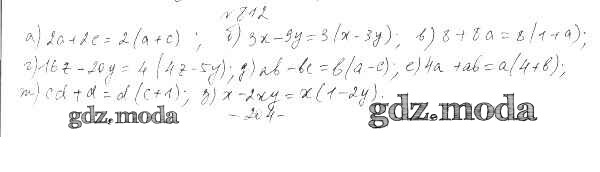 № 812
а) 2a+2c=2(a+c); б) 3x-9y=3(x-3y); в) 8+8a=8(1+a);
г) 16z-20y=4(4z-5y); д) ab-bc=b(a-c); е) 4a+ab=a(4+b);
ж) cd+d=d(c+1); з) x-2xy=x(1-2y).
gdz.moda -204- gdz.moda